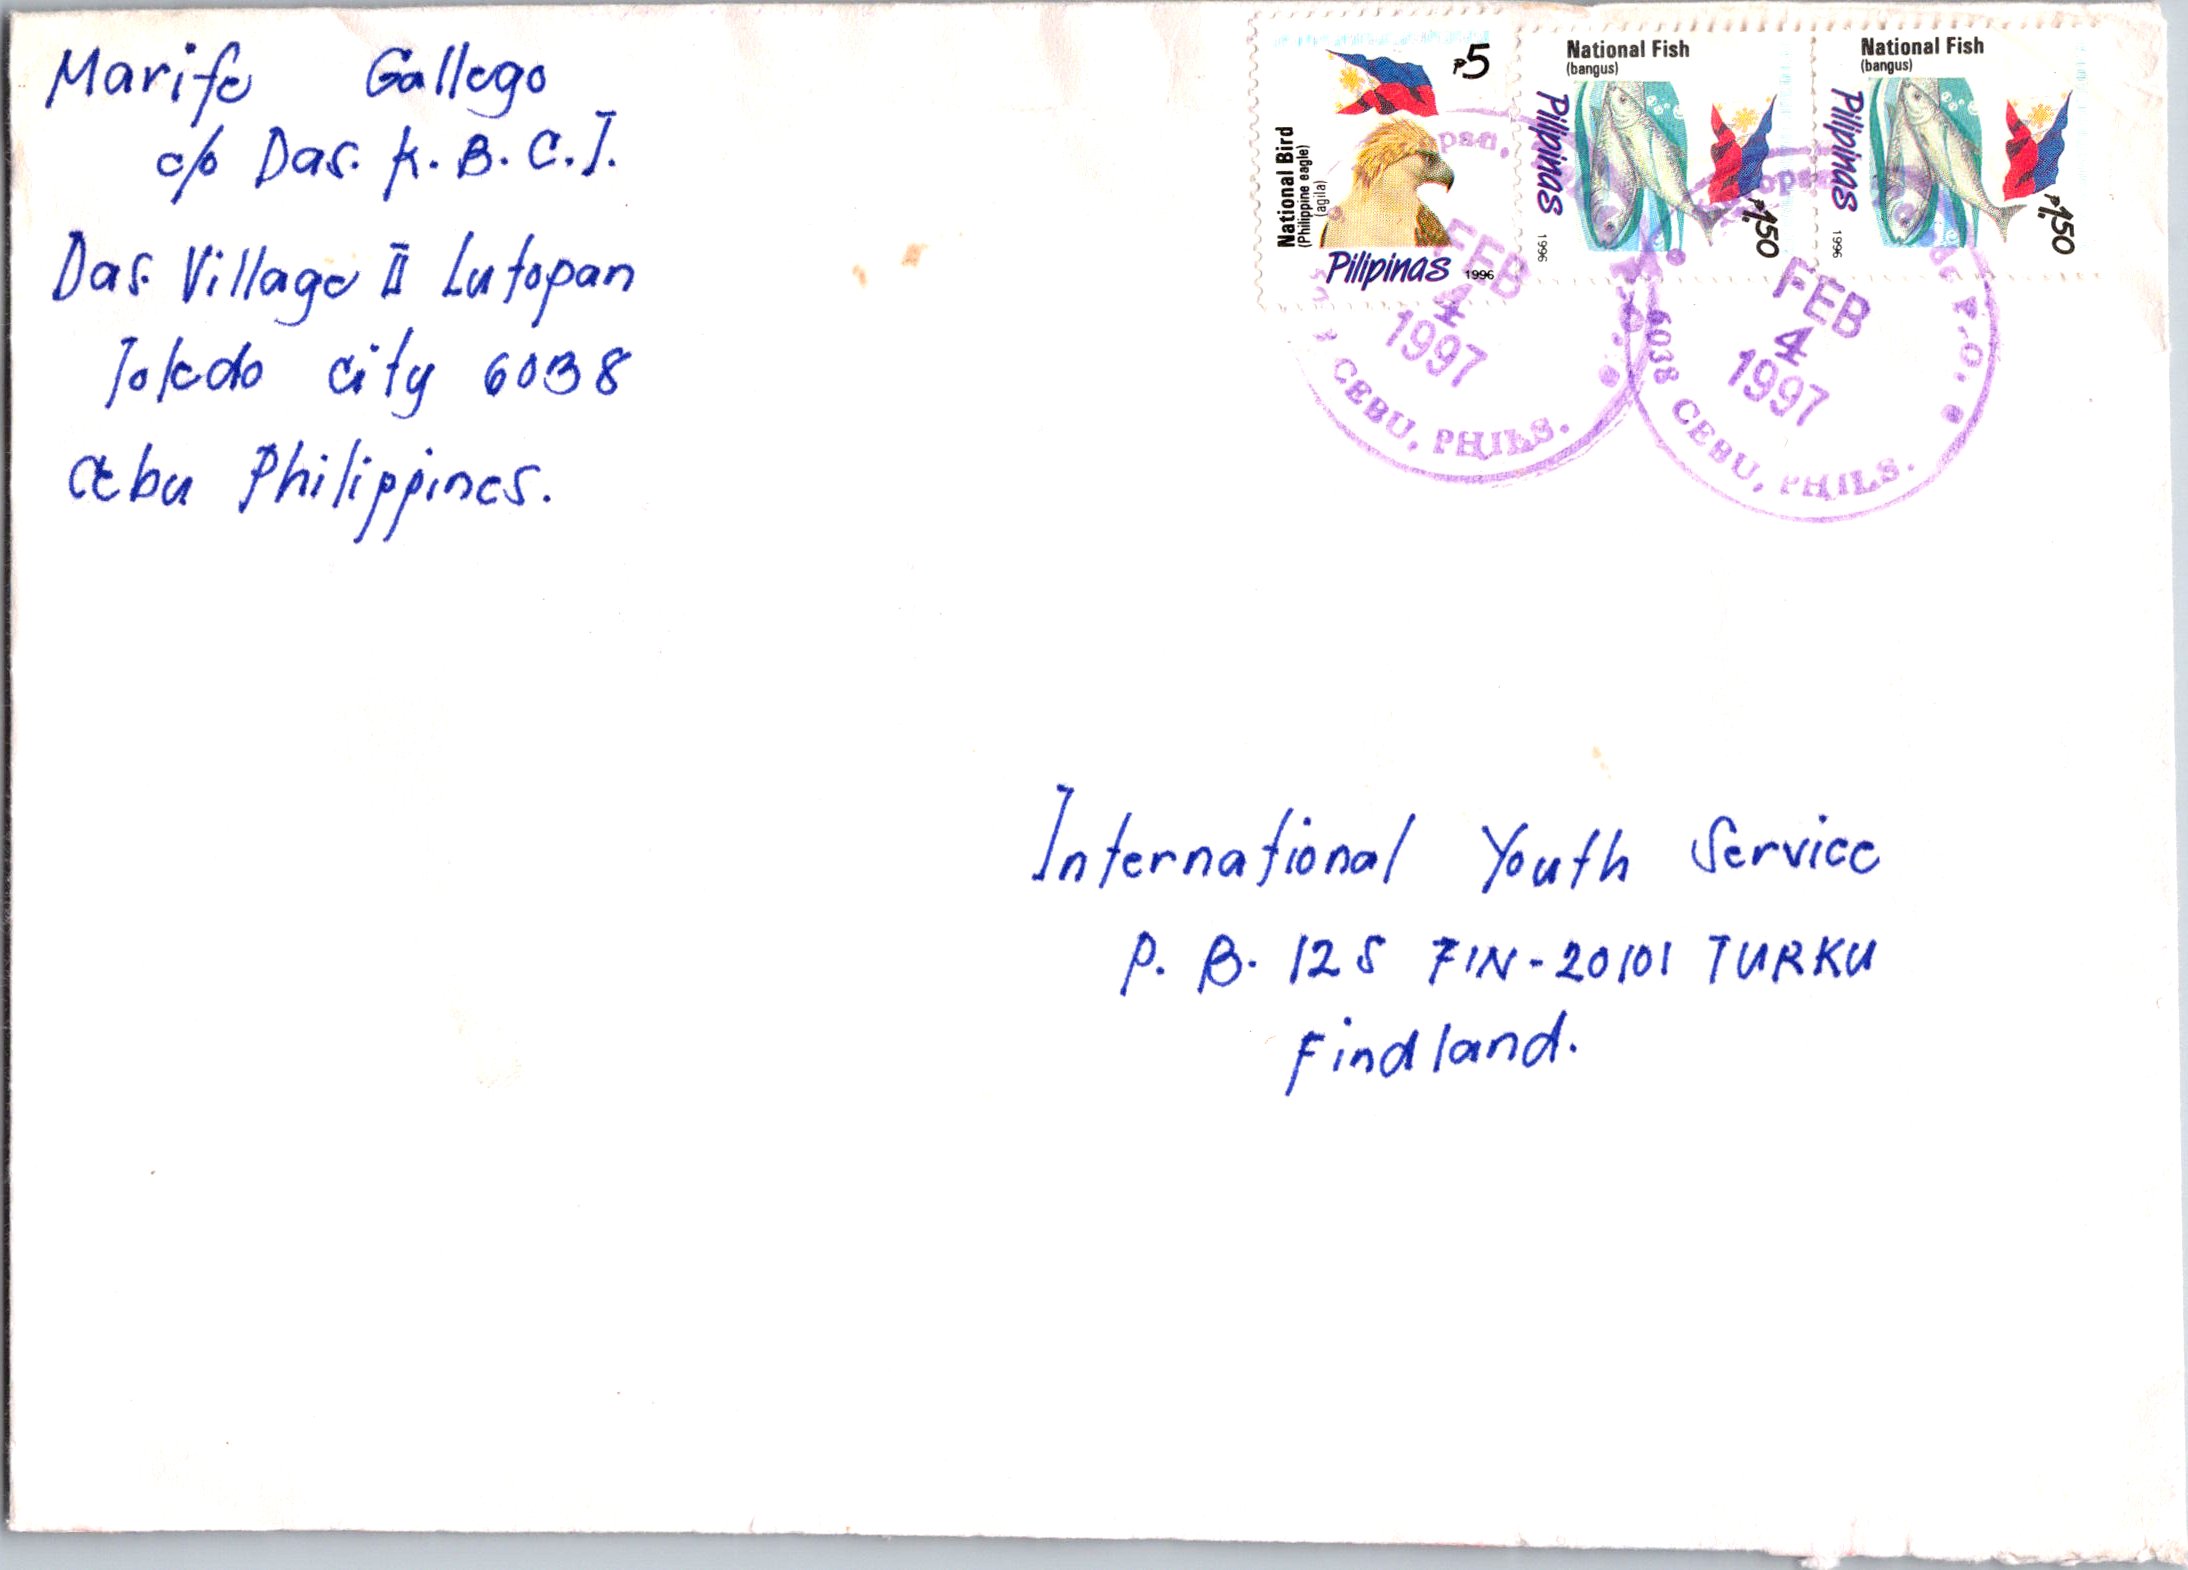 Marife Gallego
c/o Das. K. B. C. I.
Das. Village II Lutopan
Toledo City 6038
Cebu Philippines.
₱5
National Bird
(Philippine eagle)
(agila)
Pilipinas 1996
National Fish
(bangus)
Pilipinas
1996
₱1.50
National Fish
(bangus)
Pilipinas
1996
₱1.50
FEB
4
1997
CEBU, PHILS.
FEB
4
1997
P.O.
6038 CEBU, PHILS.
International Youth Service
P. B. 125 FIN-20101 TURKU
Findland.